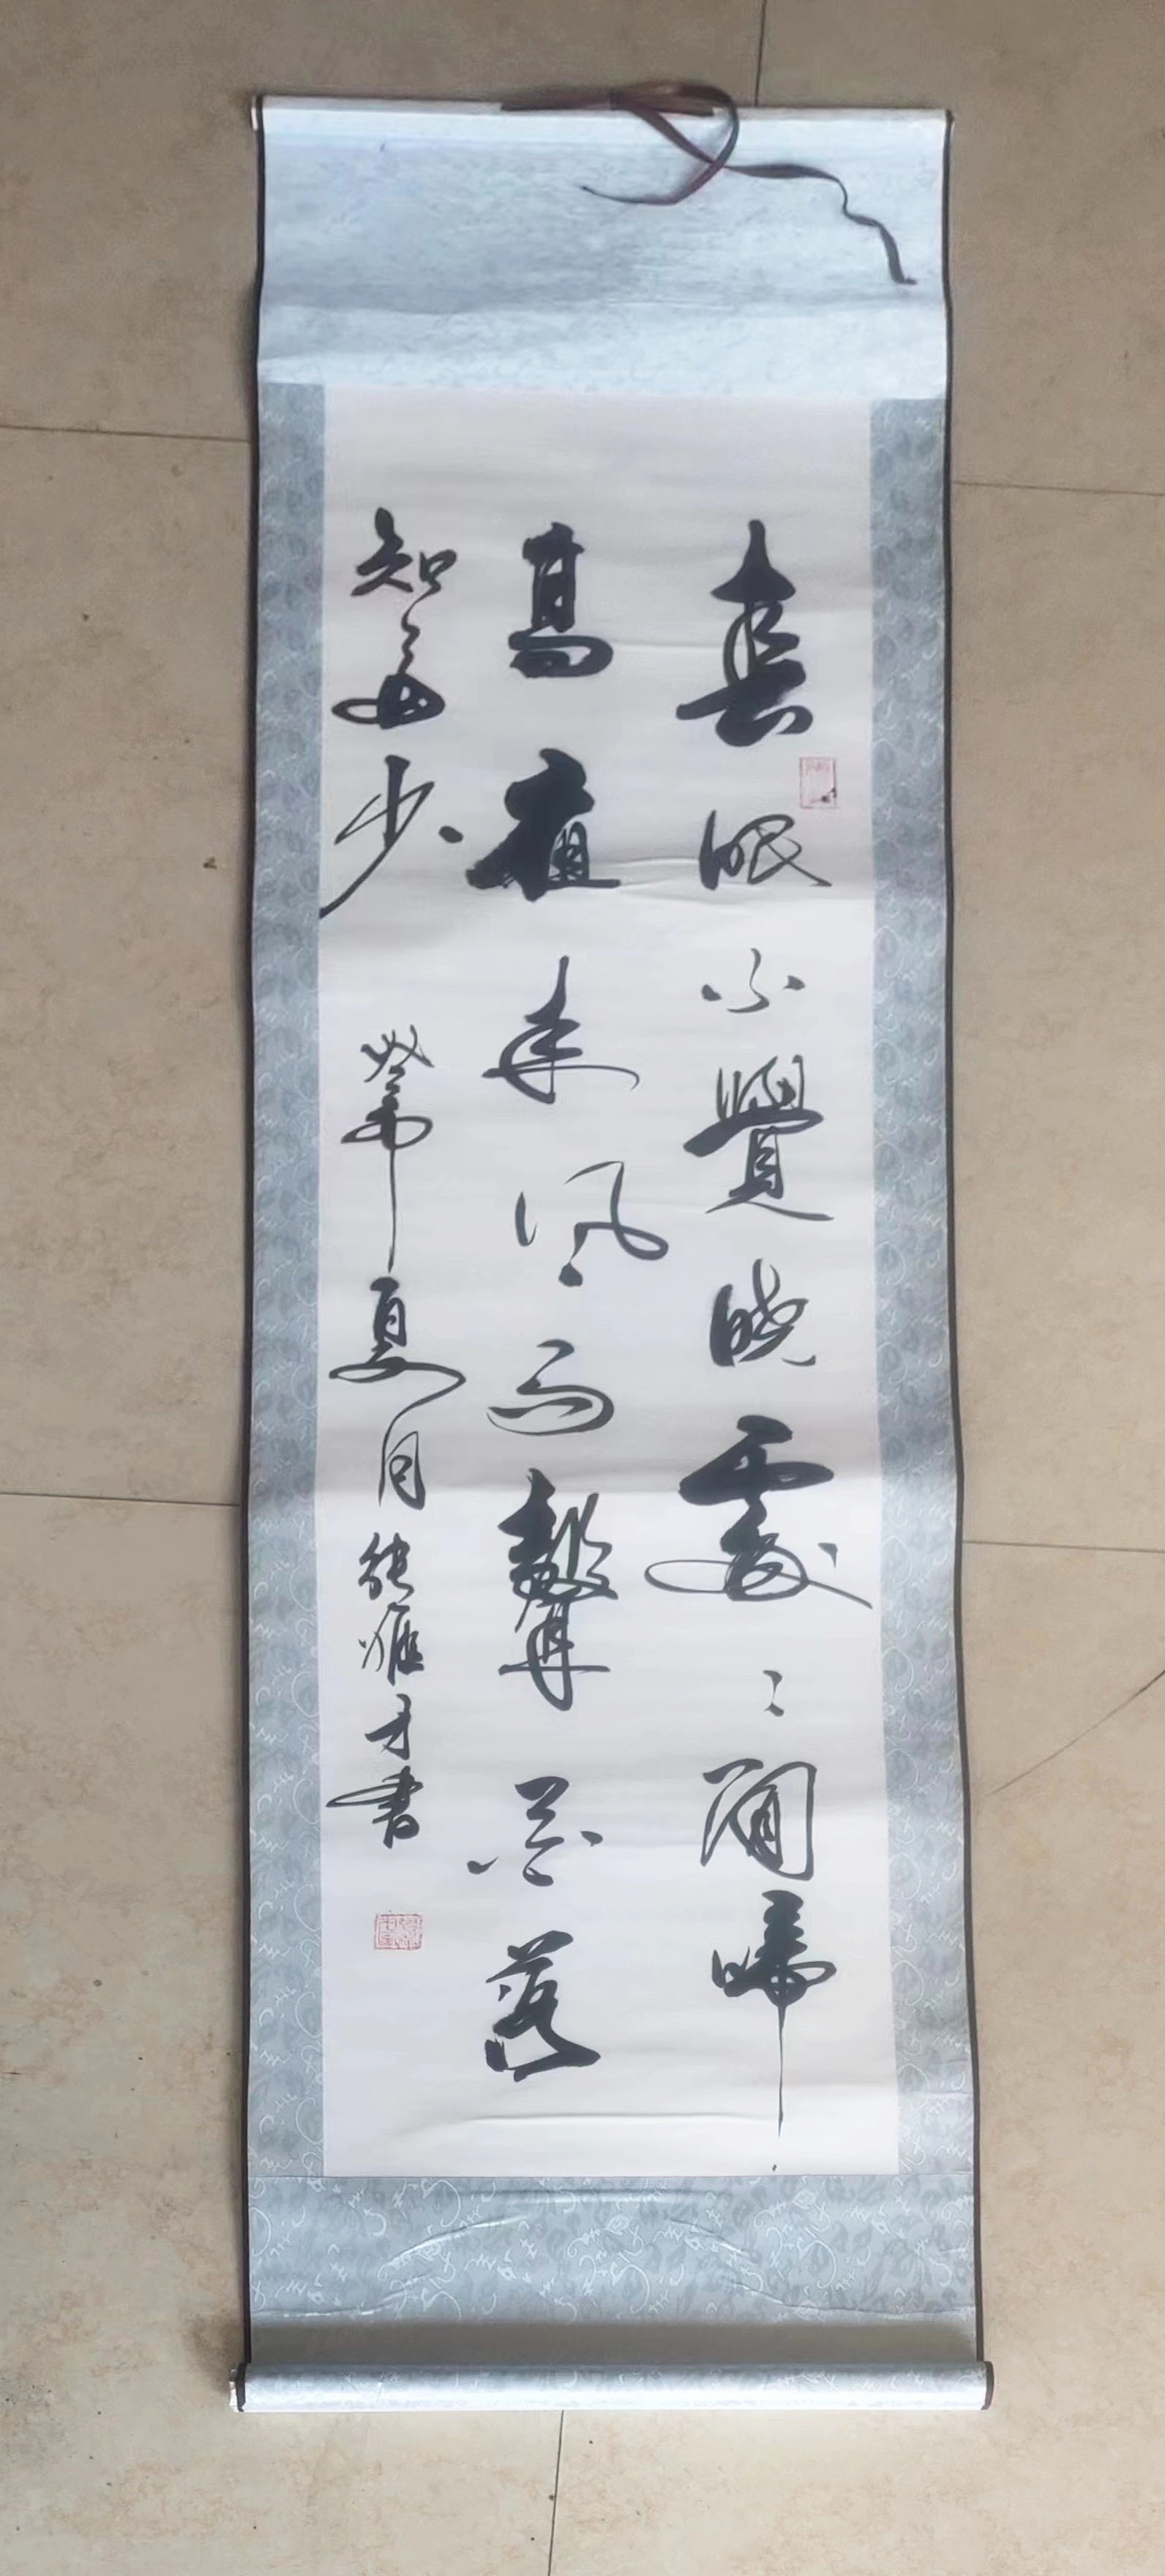 春眠不覺曉處〻聞啼
鳥夜來風雨聲花落
知多少 癸卯夏月 才書